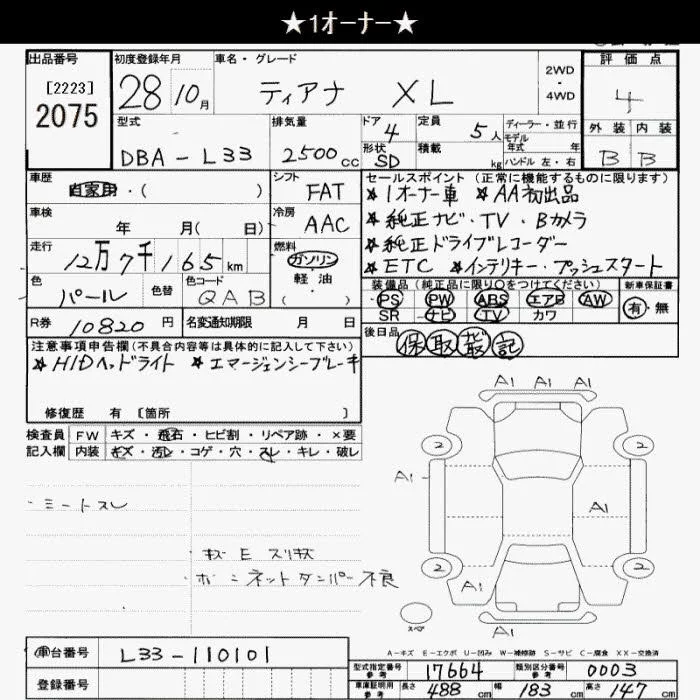 ★1オーナー★
出品番号
[2223]
2075
初度登録年月
28 10月
車名・グレード
ティアナ XL
2WD
-
4WD
評価点
4
型式
DBA-L33
排気量
2500cc
ドア
4
形状
SD
定員
5人
積載
kg
ディーラー・並行
モデル
年式 年
ハンドル 左・右
外装 内装
B B
車歴
自家用・( )
シフト
FAT
車検
年 月( 日)
冷房
AAC
走行
12万7千165km
燃料
ガソリン
軽油
( )
色
パール
色替
色コード
QAB
R券 10820円
名変通知期限 月 日
セールスポイント (正常に機能するものに限ります)
★1オーナー車 ★AA初出品
★純正ナビ・TV・Bカメラ
★純正ドライブレコーダー
★ETC ★インテリキー・プッシュスタート
装備品(純正品に限り○をつけてください)
PS PW ABS エアB AW
SR ナビ TV カワ
新車保証書
有・無
後日品
保 取 記
注意事項申告欄(不具合内容等は具体的に記入して下さい)
★HIDヘッドライト ★エマージェンシーブレーキ
修復歴 有 [箇所 ]
検査員
記入欄
FW キズ・飛石・ヒビ割・リペア跡・×要
内装 キズ・汚レ・コゲ・穴・スレ・キレ・破レ
・ミートスレ
キズ E スリキズ
ボンネットダンパー不良
A1 A1 A1
2 2
A1
A1
2 2
A1
スペア
A1
A-キズ E-エクボ U-凹み W-補修跡 S-サビ C-腐食 XX-交換済
車台番号 L33-110101
登録番号
型式指定番号
参考
17664
類別区分番号
参考
0003
車庫証明用
参考
長さ 488cm 幅 183cm 高さ 147cm